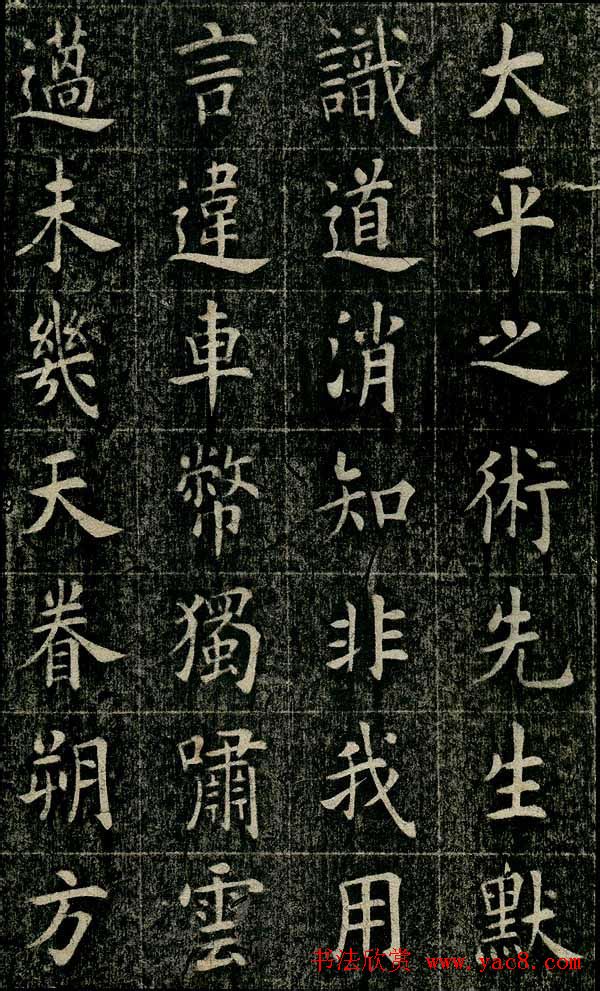 太平之術先生默
識道消知非我用
言違車幣獨嘯雲
薖未幾天眷朔方
书法欣赏 www.yac8.com